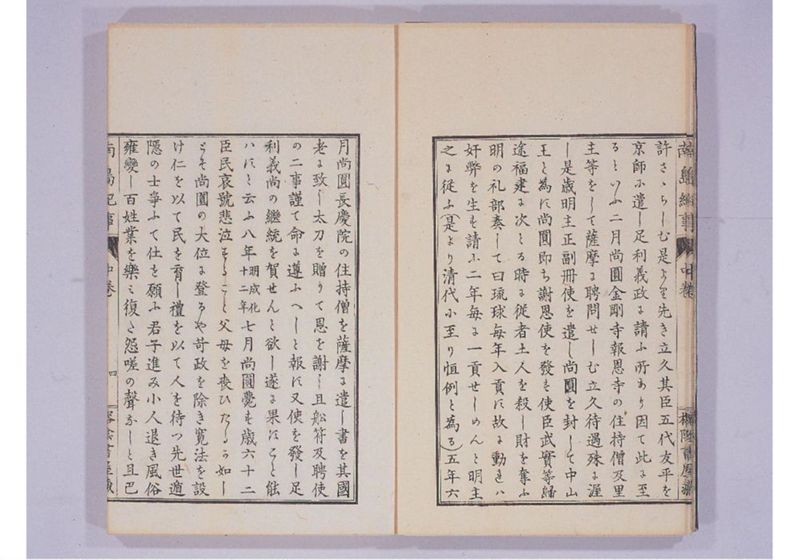 南島紀事 中巻
許さゝらしむ是より先き立久其臣五代友平を
京師に遣し足利義政に請ふ所あり因て此に至
るといふ二月尚圓金剛寺報恩寺の住持僧及里
主等をして薩摩に聘問せしむ立久待遇殊に渥
し是歳明主正副冊使を遣し尚圓を封して中山
王と為す尚圓即ち謝恩使を發す使臣武實等歸
途福建に次する時に従者土人を殺し財を奪ふ
明の礼部奏して曰琉球毎年入貢す故に動すれハ
奸弊を生す請ふ二年毎に一貢せしめんと明主
之に従ふ(是より清代に至り恒例と為る)五年六
月尚圓長慶院の住持僧を薩摩に遣し書を其國
老に致し太刀を贈りて恩を謝し且船符及聘使
の二事謹て命に遵ふへしと報す又使を發し足
利義尚の継統を賀せんと欲し遂に果すこと能
ハすと云ふ八年明成化十二年七月尚圓薨す歳六十二
臣民哀號悲泣すること父母を喪ひたるか如し
尚圓の大位に登るや苛政を除き寛法を設
け仁を以て民を育し禮を以て人を待つ先世遁
隠の士爭ふて仕を願ふ君子進み小人退き風俗
雍變し百姓業を樂み復た怨嗟の聲なしと且巴
南島紀事 中巻 四